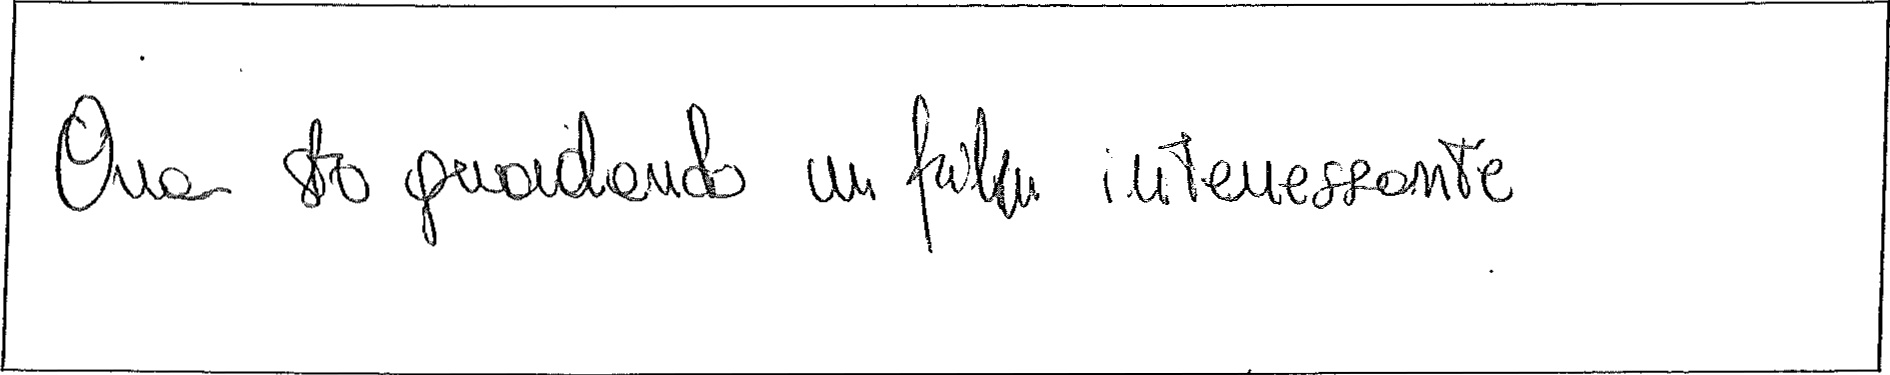 Ora sto guardando un film interessante